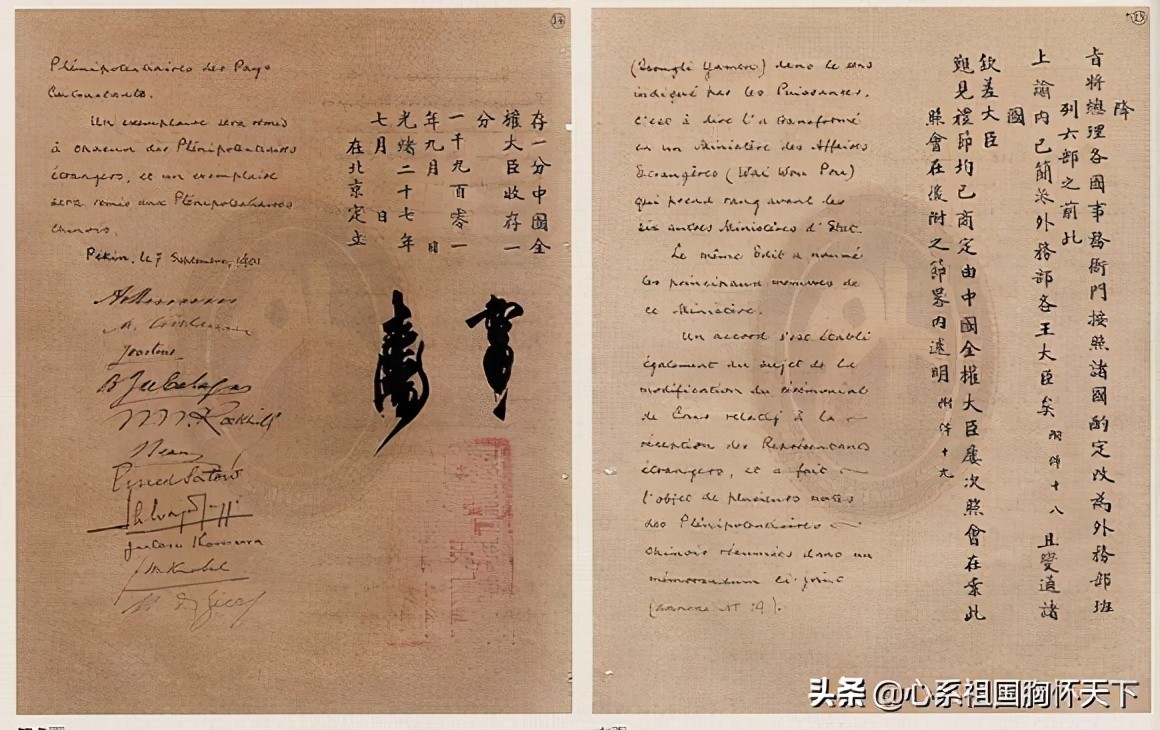 14
Plénipotentiaires des Pays
Un exemplaire sera remis
à chacun des Plénipotentiaires
étrangers, et un exemplaire
sera remis aux Plénipotentiaires
chinois.
Pékin, le 7 Septembre, 1901
Joostens
B. J. de Cologan
Rockhill
Ernest Satow
Jutaro Komura
Knobel
存一分中國全
權大臣收存一
分
一千九百零一
年九月 日
光緒二十七年
七月 日
在北京定立
15
(Tsongli Yamen) dans le sens
indiqué par les Puissances,
c'est à dire l'a transformé
en un Ministère des Affaires
Etrangères (Wai Wou Pou)
qui prend rang avant les
six autres Ministères d'Etat.
Le même Edit a nommé
les principaux membres de
ce Ministère.
Un accord s'est établi
également au sujet de la
modification du cérémonial
de Cour relatif à la
réception des Représentants
étrangers, et a fait
l'objet de plusieurs notes
des Plénipotentiaires
chinois résumées dans un
mémorandum ci-joint
(annexe N° 19).
降
旨將總理各國事務衙門按照諸國酌定改為外務部班
列六部之前此
上諭內已簡派外務部各王大臣矣附件十八且變通諸
國
欽差大臣
覲見禮節均已商定由中國全權大臣屢次照會在案此
照會在後附之節畧內述明附件十九
头条 @心系祖国胸怀天下